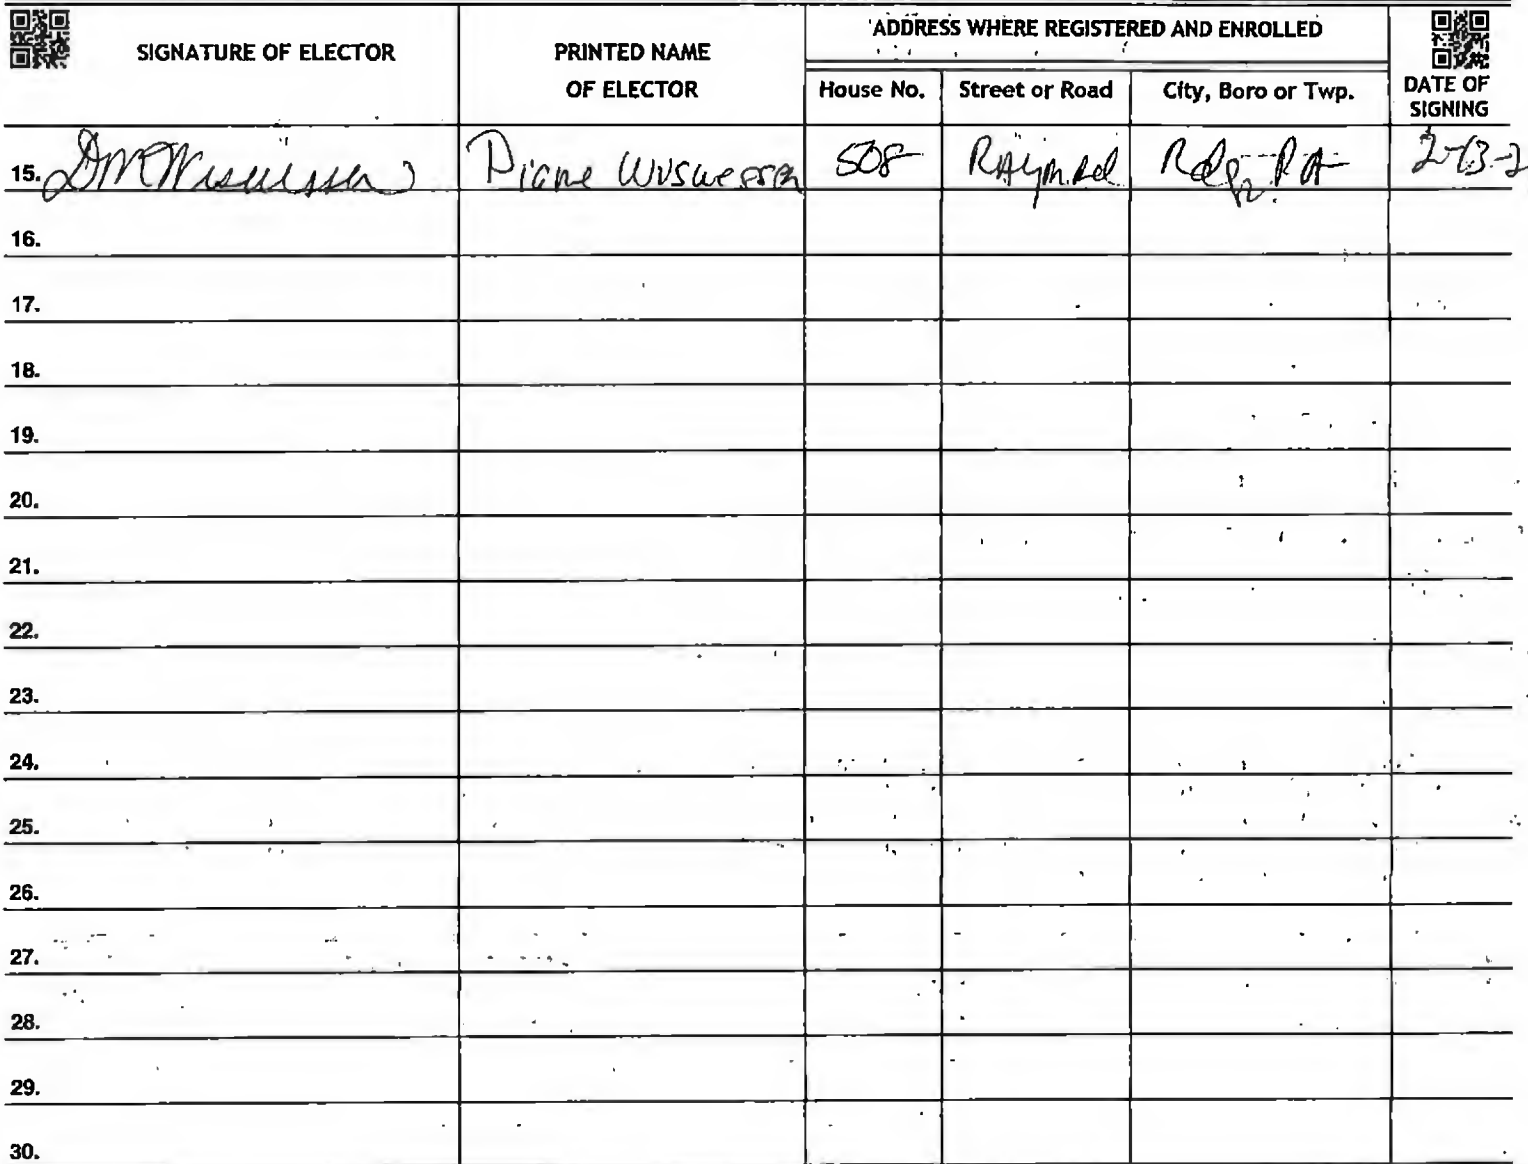 SIGNATURE OF ELECTOR
PRINTED NAME OF ELECTOR
ADDRESS WHERE REGISTERED AND ENROLLED
House No.
Street or Road
City, Boro or Twp.
DATE OF SIGNING
15. Diane 508 Raym. Rd Rdg. PA 2-13-2
16.
17.
18.
19.
20.
21.
22.
23.
24.
25.
26.
27.
28.
29.
30.